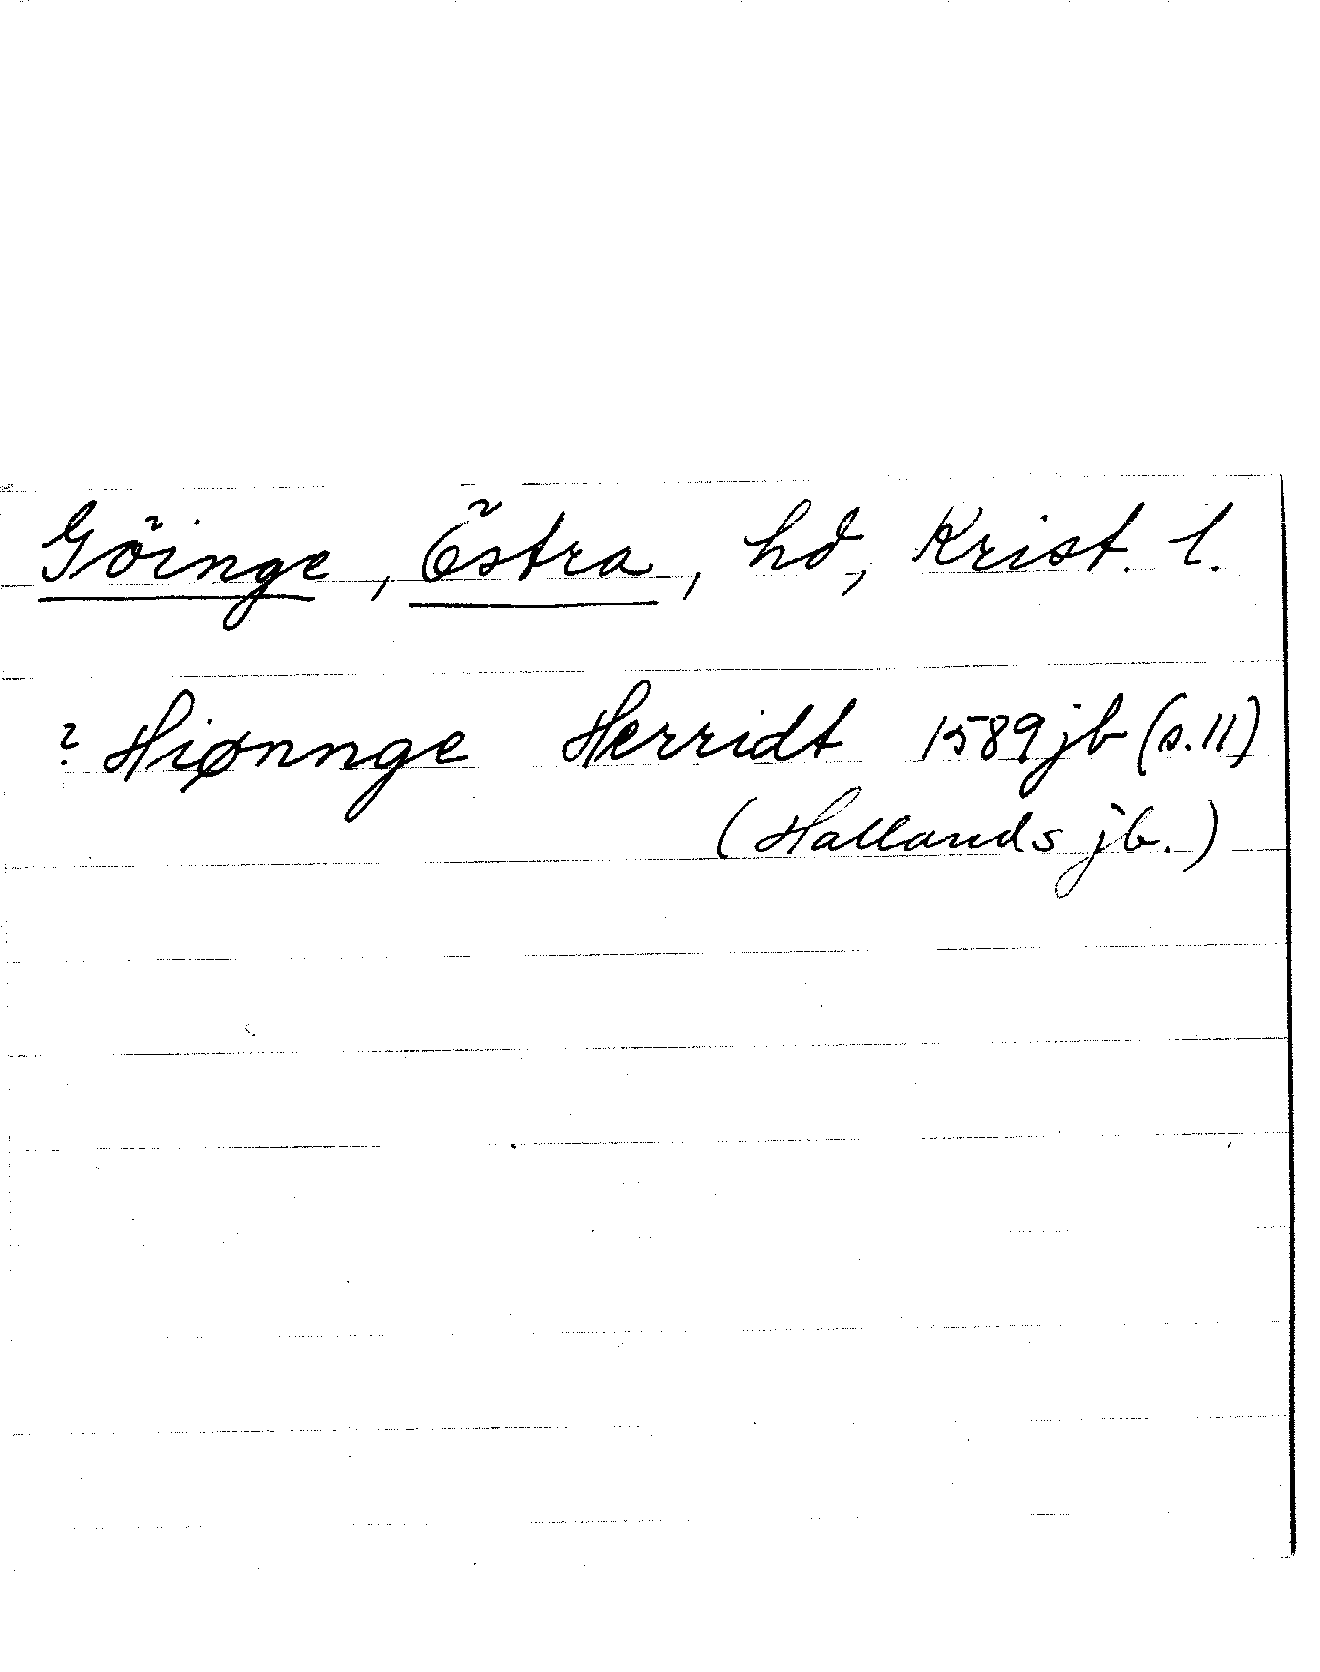 Göinge, Östra, hd, Krist. l.
? Hiønnge Herridt 1589 jb (s. 11)
(Hallands jb.)